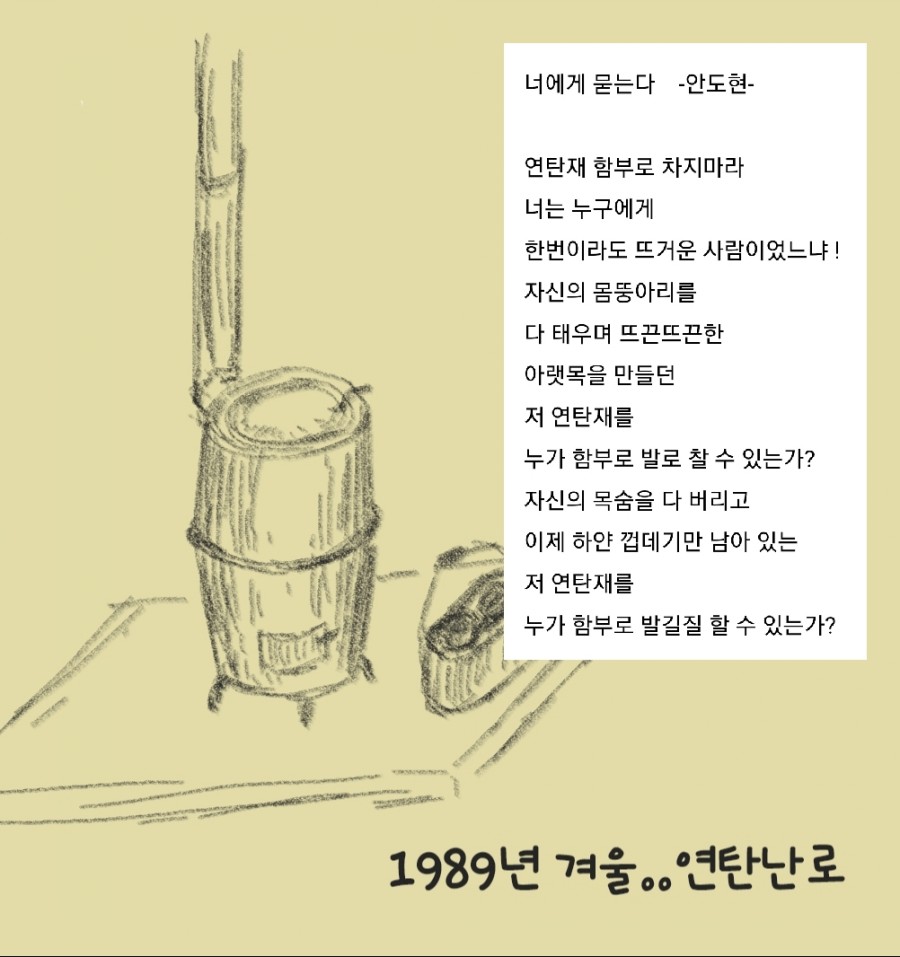 너에게 묻는다 -안도현-
연탄재 함부로 차지마라
너는 누구에게
한번이라도 뜨거운 사람이었느냐 !
자신의 몸뚱아리를
다 태우며 뜨끈뜨끈한
아랫목을 만들던
저 연탄재를
누가 함부로 발로 찰 수 있는가?
자신의 목숨을 다 버리고
이제 하얀 껍데기만 남아 있는
저 연탄재를
누가 함부로 발길질 할 수 있는가?
1989년 겨울..연탄난로